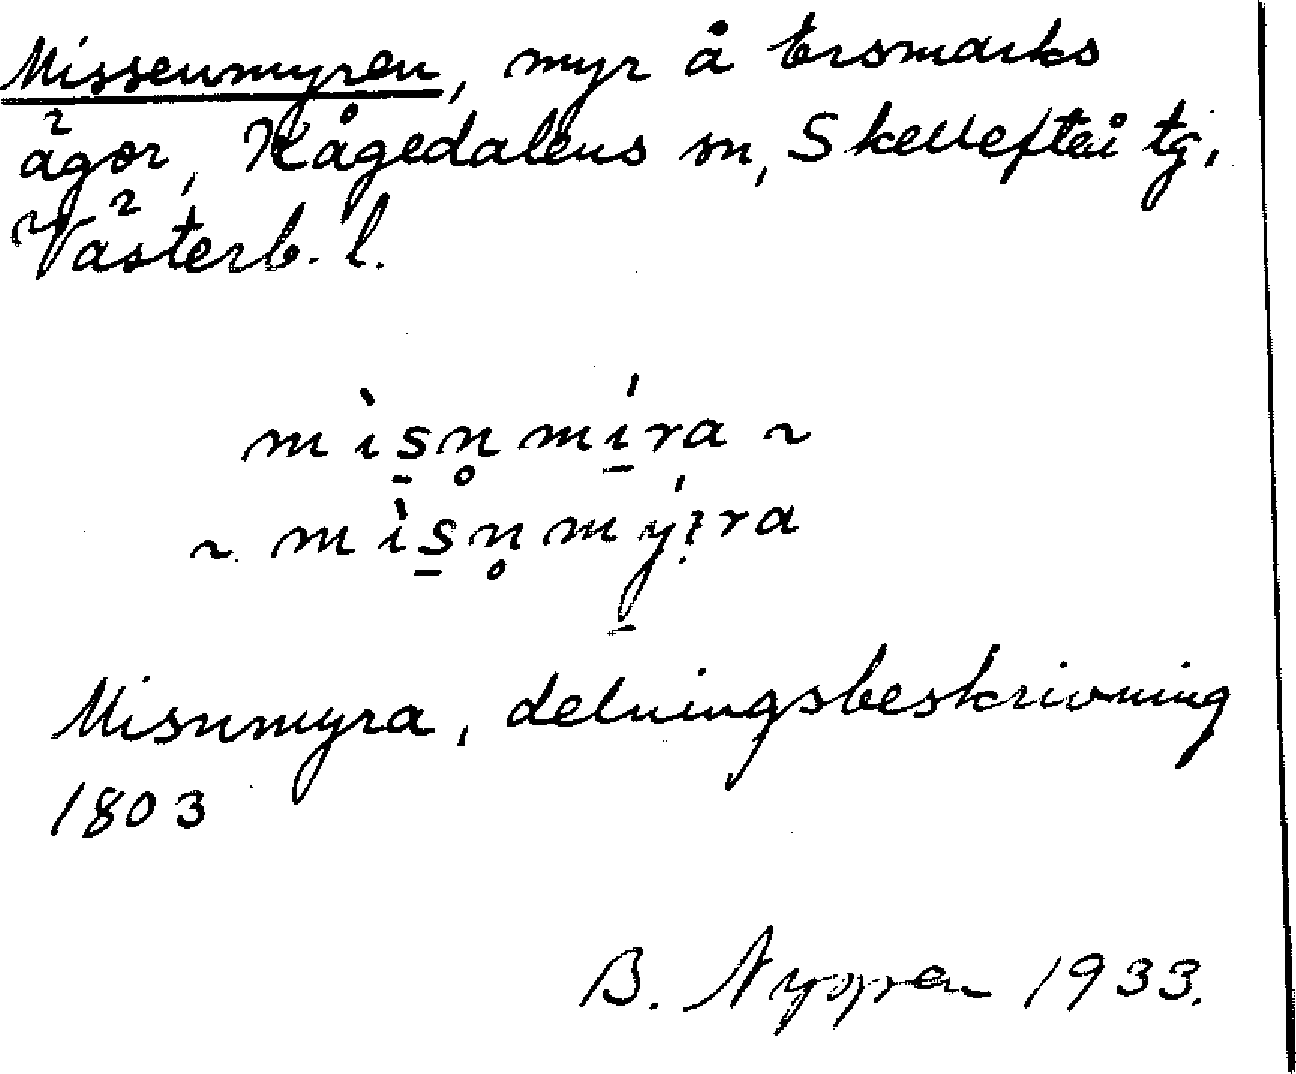 Missenmyren, myr å Ersmarks
ägor, Kågedalens sn, Skellefteå tg,
Västerb. l.
mı̀s̱n̥mı̱́ra ~
~ mı̀s̱n̥mý̱ra
Misnmyra, delningsbeskrivning
1803
B. 1933.